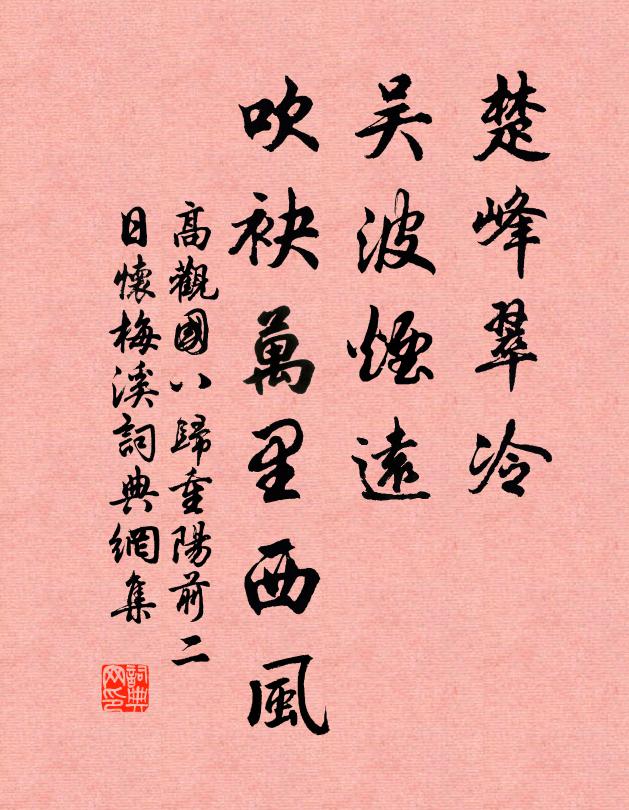 楚峰翠冷
吴波煙遠
吹袂萬里西風
高觀國八歸重陽前二
日懷梅溪詞典網集
詞典網印